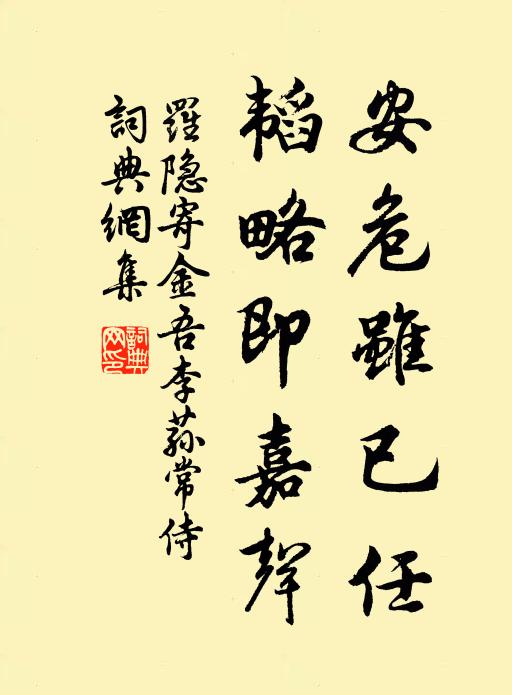 安危雖已任
韜略即嘉聲
羅隐寄金吾李荪常侍
詞典網集
詞典网印